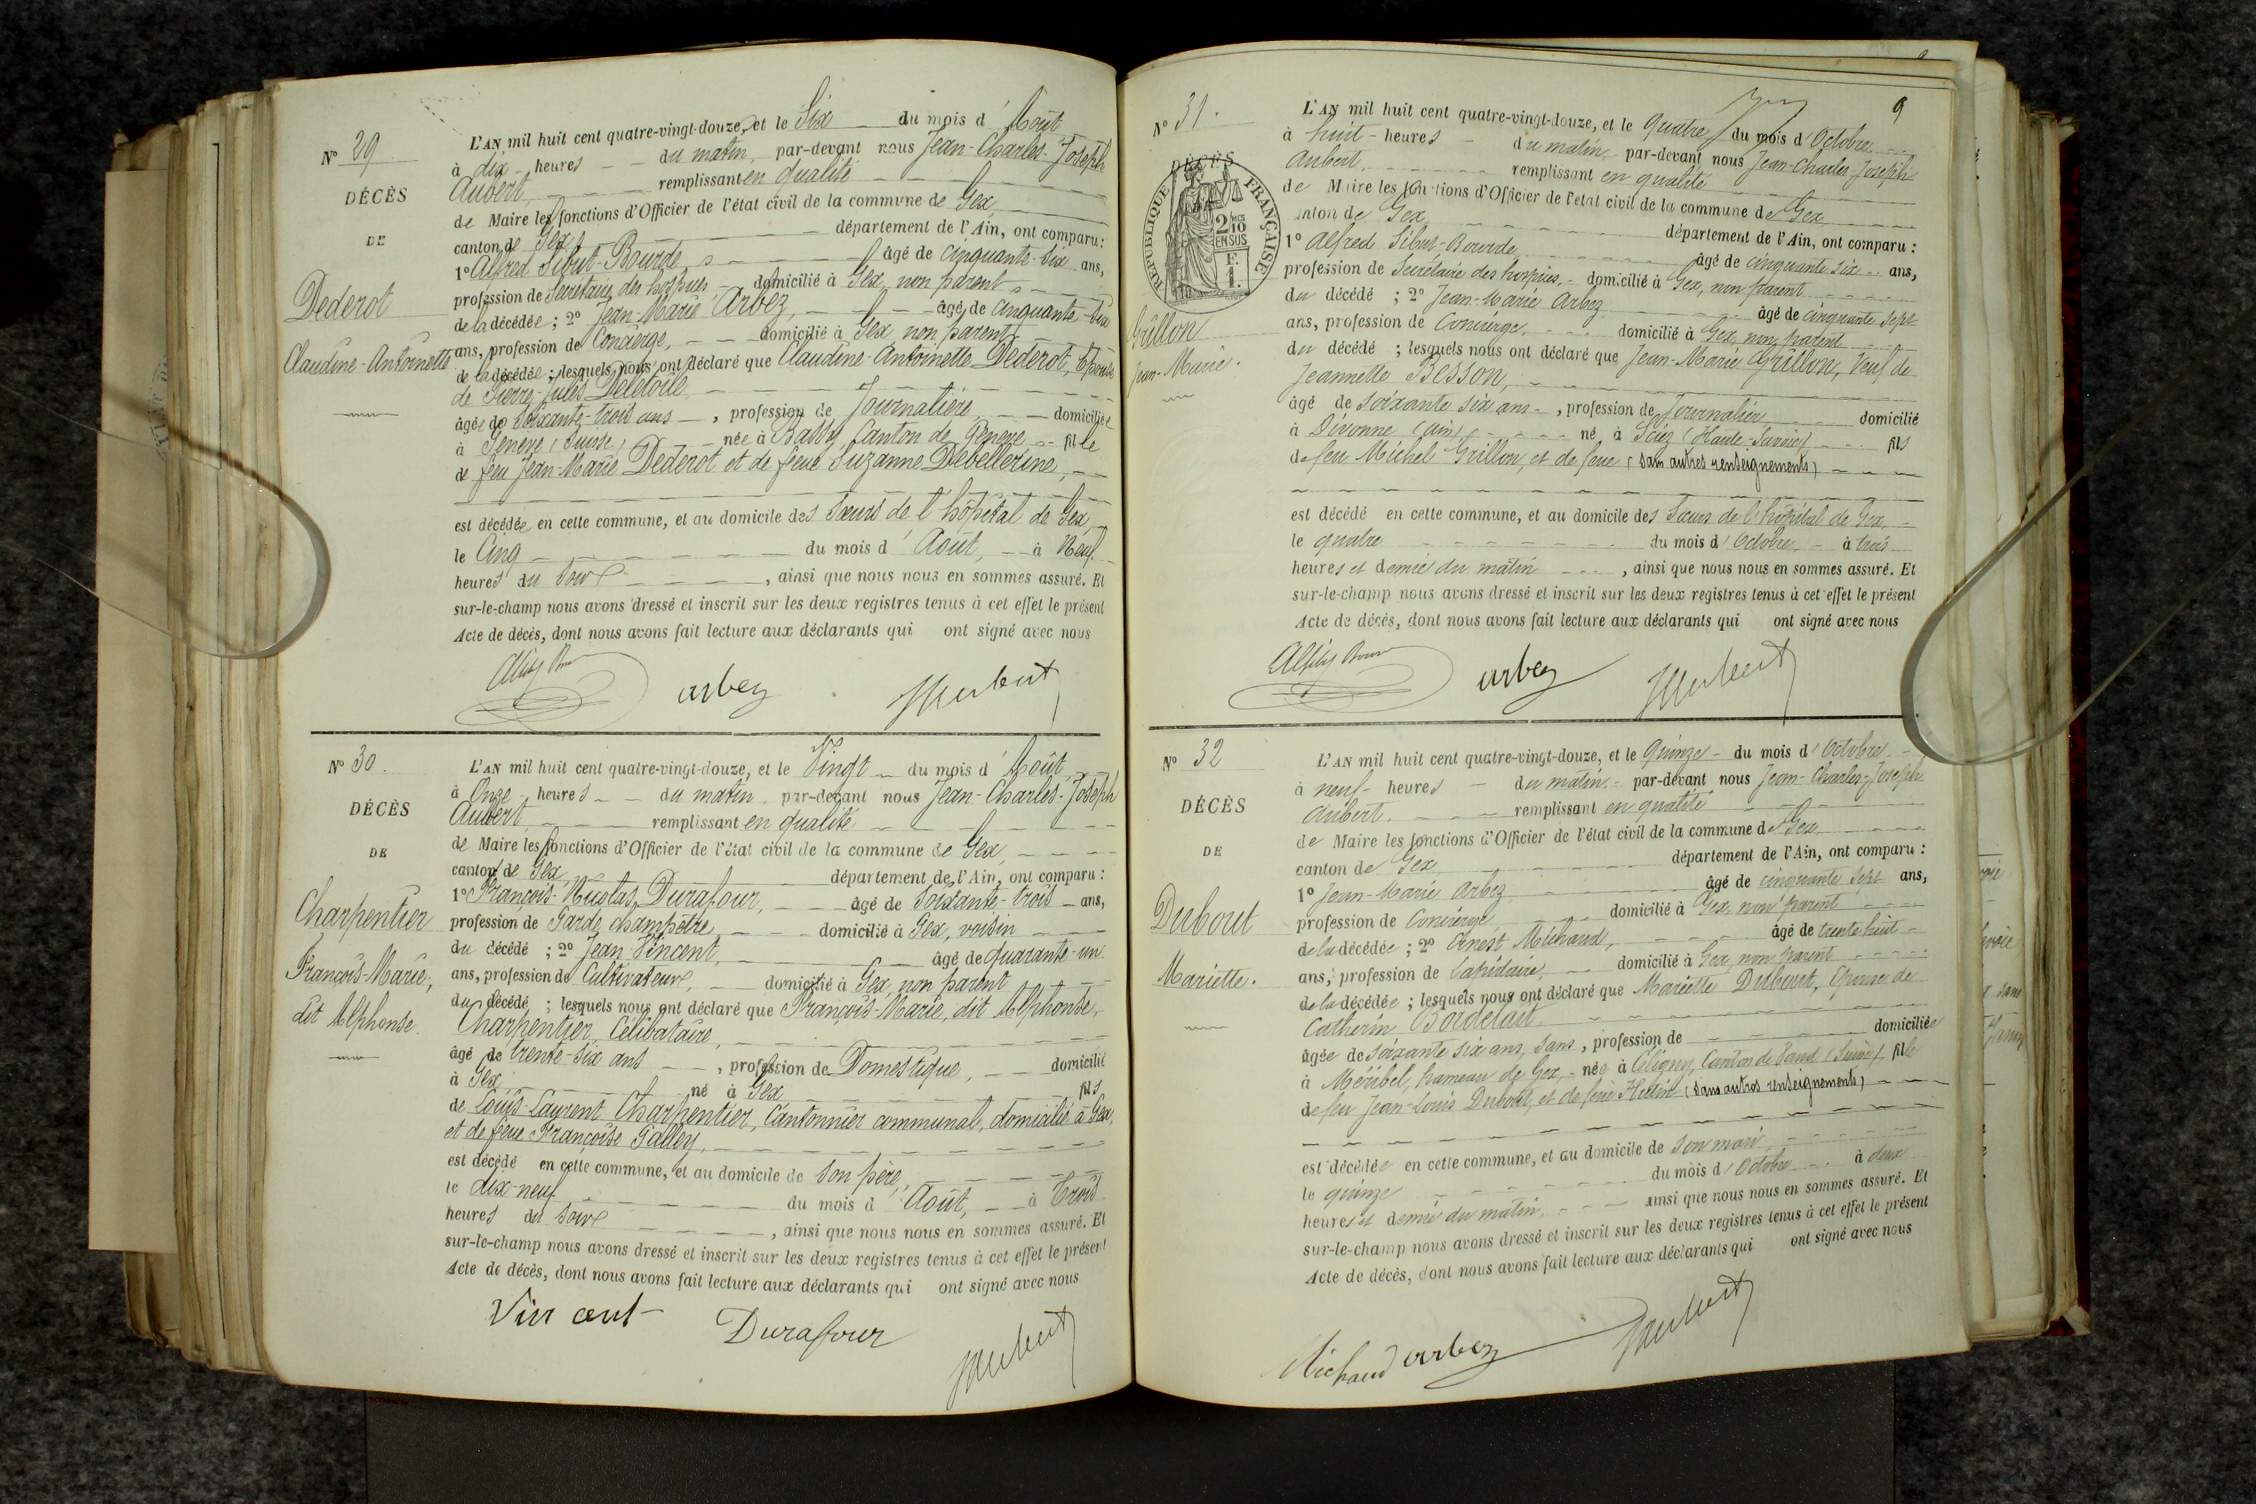 N° 29
DÉCÈS
DE
Dederot
Claudine-Antoinette
L'AN mil huit cent quatre-vingt-douze, et le Six du mois d'Août
à dix heures du matin, par-devant nous Jean-Charles-Joseph
Aubert, remplissant en qualité
de Maire les fonctions d'Officier de l'état civil de la commune de Gex
canton de Gex, département de l'Ain, ont comparu :
1° Alfred Sibut-Bourde, âgé de cinquante-six ans,
profession de Secrétaire des hospices domicilié à Gex, non parent
de la décédée ; 2° Jean-Marie Arbez, âgé de cinquante-six
ans, profession de Concierge, domicilié à Gex, non parent
de la décédée ; lesquels nous ont déclaré que Claudine-Antoinette Dederot, Epouse
de Pierre-Jules Deletoile,
âgée de Soixante-trois ans, profession de Journalière, domiciliée
à Genève (Suisse) née à Bassy, Canton de Genève fille
de feu Jean-Marie Dederot et de feue Suzanne Debellerine,
est décédée en cette commune, et au domicile des Sœurs de l'hôpital de Gex,
le Cinq du mois d'Août, à Neuf
heures du Soir, ainsi que nous nous en sommes assuré. Et
sur-le-champ nous avons dressé et inscrit sur les deux registres tenus à cet effet le présent
Acte de décès, dont nous avons fait lecture aux déclarants qui ont signé avec nous
arbez
N° 30.
DÉCÈS
DE
Charpentier
François-Marie,
dit Alphonse.
L'AN mil huit cent quatre-vingt-douze, et le Vingt du mois d'Août
à Onze heures du matin, par-devant nous Jean-Charles-Joseph
Aubert, remplissant en qualité
de Maire les fonctions d'Officier de l'état civil de la commune de Gex,
canton de Gex, département de l'Ain, ont comparu :
1° François-Nicolas Durafour, âgé de Soixante-trois ans,
profession de Garde champêtre, domicilié à Gex, voisin
du décédé ; 2° Jean Vincent, âgé de quarante-un
ans, profession de Cultivateur, domicilié à Gex, non parent
du décédé ; lesquels nous ont déclaré que François-Marie, dit Alphonse,
Charpentier, Célibataire,
âgé de trente-six ans, profession de Domestique, domicilié
à Gex né à Gex fils
de Louis-Laurent Charpentier, Cantonnier communal, domicilié à Gex,
et de feue Françoise Galley,
est décédé en cette commune, et au domicile de son père,
le dix-neuf du mois d'Août, à Trois
heures du soir, ainsi que nous nous en sommes assuré. Et
sur-le-champ nous avons dressé et inscrit sur les deux registres tenus à cet effet le présent
Acte de décès, dont nous avons fait lecture aux déclarants qui ont signé avec nous
Vincent Durafour
9
N° 31.
DÉCÈS
RÉPUBLIQUE FRANÇAISE
2/10
EN SUS
F.
1.
Grillon
Jean-Marie.
L'AN mil huit cent quatre-vingt-douze, et le quatre du mois d'Octobre
à huit heures du matin, par-devant nous Jean-Charles-Joseph
Aubert, remplissant en qualité
de Maire les fonctions d'Officier de l'état civil de la commune de Gex
canton de Gex département de l'Ain, ont comparu :
1° Alfred Sibut-Bourde âgé de cinquante six ans,
profession de Secrétaire des hospices, domicilié à Gex, non parent
du décédé ; 2° Jean-Marie Arbez âgé de cinquante sept
ans, profession de Concierge, domicilié à Gex, non parent
du décédé ; lesquels nous ont déclaré que Jean-Marie Grillon, Veuf de
Jeannette Besson,
âgé de soixante six ans, profession de Journalier domicilié
à Divonne (Ain) né à Sciez (Haute-Savoie) fils
de feu Michel Grillon, et de feue (sans autres renseignements)
est décédé en cette commune, et au domicile des Sœurs de l'hôpital de Gex,
le quatre du mois d'Octobre à trois
heures et demie du matin, ainsi que nous nous en sommes assuré. Et
sur-le-champ nous avons dressé et inscrit sur les deux registres tenus à cet effet le présent
Acte de décès, dont nous avons fait lecture aux déclarants qui ont signé avec nous
arbez
N° 32
DÉCÈS
DE
Dubout
Mariette.
L'AN mil huit cent quatre-vingt-douze, et le Quinze du mois d'Octobre
à neuf heures du matin par-devant nous Jean-Charles-Joseph
Aubert. remplissant en qualité
de Maire les fonctions d'Officier de l'état civil de la commune de Gex
canton de Gex département de l'Ain, ont comparu :
1° Jean-Marie Arbez âgé de cinquante sept ans,
profession de Concierge domicilié à Gex, non parent
de la décédée ; 2° Ernest Michaud, âgé de trente huit
ans, profession de Lapidaire, domicilié à Gex, non parent
de la décédée ; lesquels nous ont déclaré que Mariette Dubout, épouse de
Catherin Bordelait
âgée de soixante six ans, sans, profession de domiciliée
à Méribel, hameau de Gex, née à Céligny, Canton de Vaud (Suisse) fille
de feu Jean-Louis Dubout, et de feue Hutin (sans autres renseignements)
est décédée en cette commune, et au domicile de son mari
le quinze du mois d'Octobre à deux
heures et demie du matin, ainsi que nous nous en sommes assuré. Et
sur-le-champ nous avons dressé et inscrit sur les deux registres tenus à cet effet le présent
Acte de décès, dont nous avons fait lecture aux déclarants qui ont signé avec nous
Michaud arbez